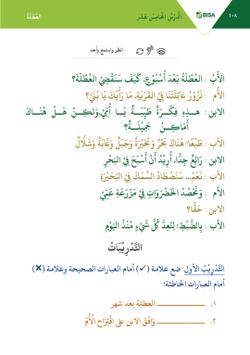 ١٠٨ BISA الدَّرْسُ الْخَامِسَ عَشَرَ الْعُطْلَةُ
انظر واستمع وأعد
الأَبُ : الْعُطْلَةُ بَعْدَ أُسْبُوعٍ، كَيْفَ سَنَقْضِي الْعُطْلَةَ؟
الأم : نَزُورُ عَائِلَتَنَا فِي الْقَرْيَةِ، مَا رَأْيُكَ يَا بُنَيَّ؟
الابن : هَذِهِ فِكْرَةٌ طَيِّبَةٌ يَا أُمِّي، وَلَكِنْ هَلْ هُنَاكَ
أَمَاكِنُ جَمِيلَةٌ؟
الأب : طَبْعًا؛ هُنَاكَ بَحْرٌ وَبُحَيْرَةٌ وَجَبَلٌ وَغَابَةٌ وَشَلَّالٌ
الابن : رَائِعٌ جِدًّا، أُرِيدُ أَنْ أَسْبَحَ فِي الْبَحْرِ
الأب : نَعَمْ... سَنَصْطَادُ السَّمَكَ فِي الْبُحَيْرَةِ
الأم : وَنَحْصُدُ الْخَضْرَوَاتِ فِي مَزْرَعَةِ عَمِّي
الابن : حَقًّا؟
الأب : بِالضَّبْطِ! لِنُعِدَّ كُلَّ شَيْءٍ مُنْذُ الْيَوْمِ
التَّدْرِيبَاتُ
التَّدْرِيبُ الأَول: ضع علامة (✓) أمام العبارات الصحيحة وعلامة (✗)
أمام العبارات الخاطئة!
١. ______ العطلة بعد شهر
٢. ______ وَافَقَ الابن على اقْتِرَاحِ الْأُمِّ